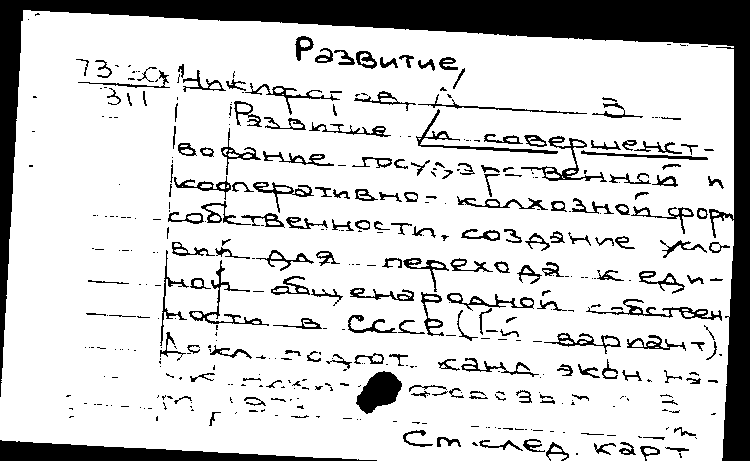 Развитие
Никифоров, Л З
311
Развитие и совершенст-
вование государственной и
кооперативно-колхозной форм
собственности, создание усло-
вий для перехода к еди-
ной общенародной собствен-
ности в СССР (1-й вариант).
Докл. подгот. канд. экон. на-
З
М.,
См. след. карт